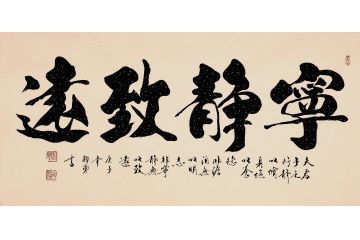 寧静致遠
夫君
子之
行静
以脩
身儉
以養
德
非澹
泊無
以明
志
非寧
静無
以致
遠
庚子
年
書